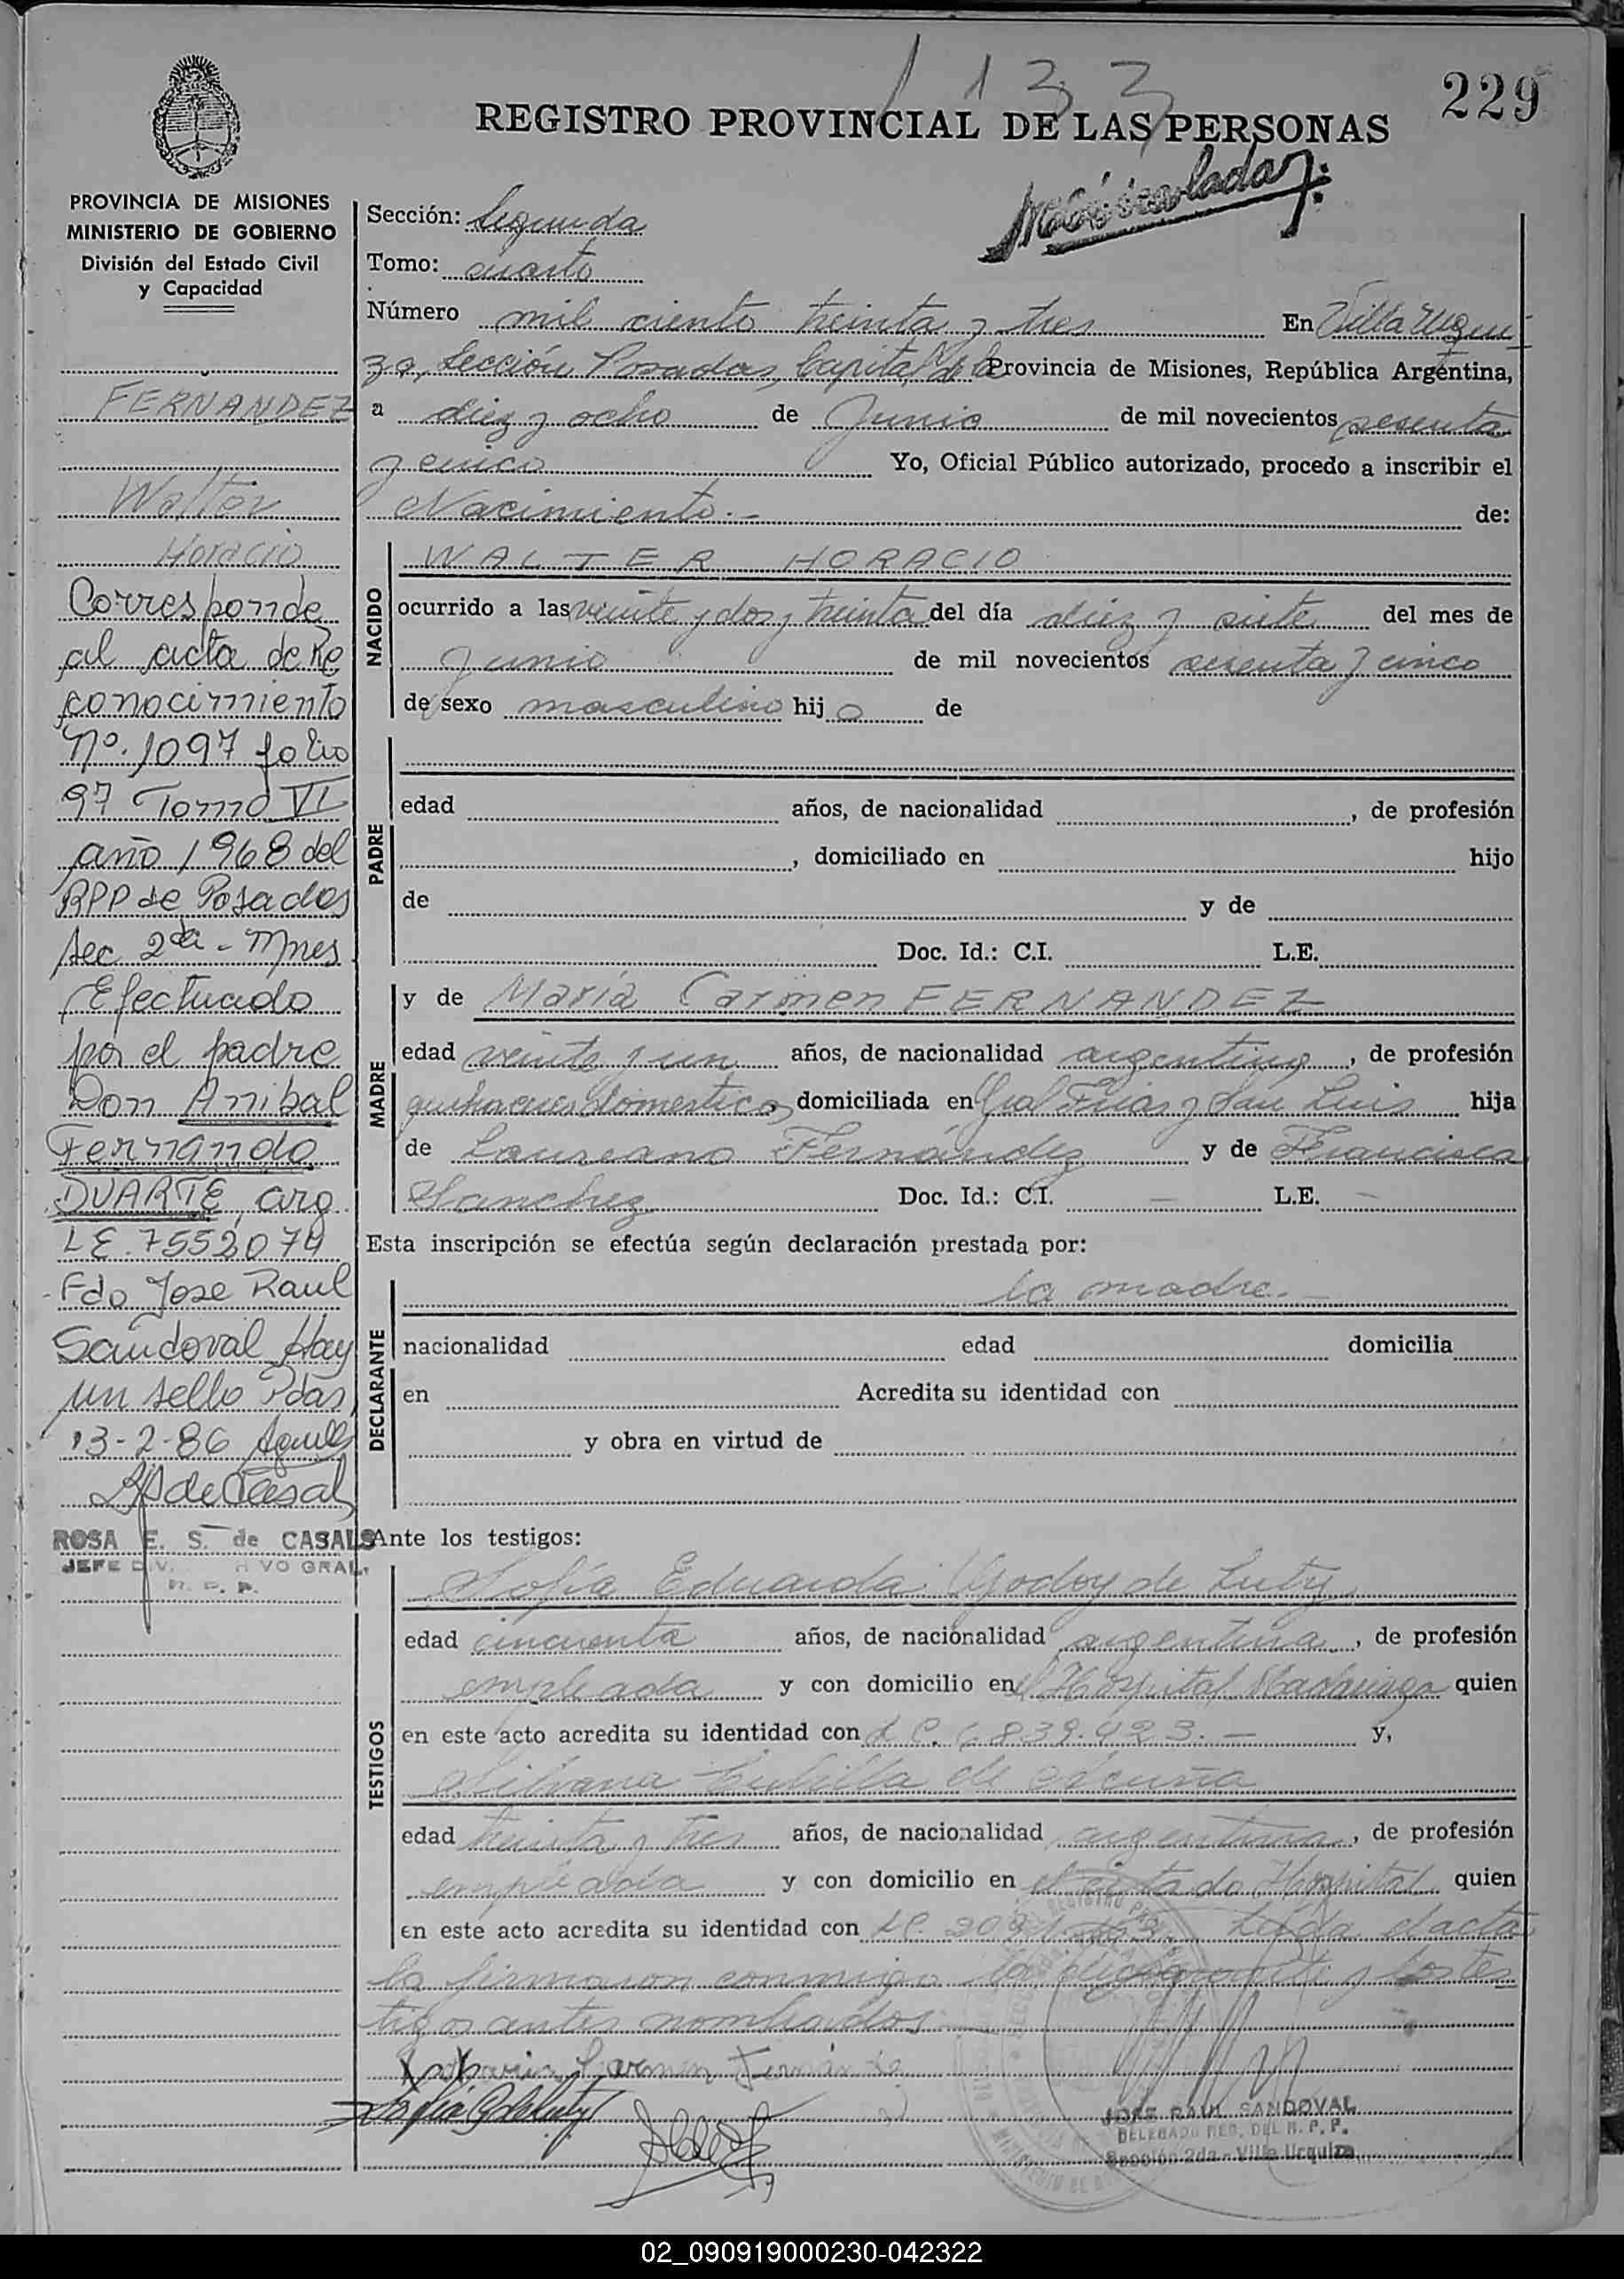 1133
229
REGISTRO PROVINCIAL DE LAS PERSONAS
PROVINCIA DE MISIONES
MINISTERIO DE GOBIERNO
División del Estado Civil
y Capacidad
FERNANDEZ
Walter
Horacio
Corresponde
al acta de Re
conocimiento
Nº. 1097 folio
97 Tomo VI
año 1968 del
RPP de Posadas
sec 2da - Mnes
Efectuado
por el padre
Don Anibal
Fernando
DUARTE, arg.
LE. 7552074
Fdo Jose Raul
Sandoval Hay
un sello Pdas,
13-2-86
de Casals
ROSA E. S. de CASALS
JEFE DIV. VO GRAL.
R. P. P.
Sección: Segunda
Tomo: cuarto
Número mil ciento treinta y tres En Villa Urqui
za, Sección Posadas, Capital de la Provincia de Misiones, República Argentina,
a diez y ocho de Junio de mil novecientos sesenta
y cinco Yo, Oficial Público autorizado, procedo a inscribir el
Nacimiento.- de:
NACIDO
WALTER HORACIO
ocurrido a las veinte y dos y treinta del día diez y siete del mes de
Junio de mil novecientos sesenta y cinco
de sexo masculino hijo de
PADRE
edad años, de nacionalidad , de profesión
, domiciliado en hijo
de y de
Doc. Id.: C.I. L.E.
MADRE
y de María Carmen FERNANDEZ
edad veinte y un años, de nacionalidad argentina, de profesión
quehaceres domesticos, domiciliada en Gral Frias y San Luis hija
de Laureano Fernández y de Francisca
Sanchez Doc. Id.: C.I. — L.E. —
Esta inscripción se efectúa según declaración prestada por:
DECLARANTE
la madre.-
nacionalidad edad domicilia
en Acredita su identidad con
y obra en virtud de
Ante los testigos:
TESTIGOS
Sofía Eduarda Godoy de Luty
edad cincuenta años, de nacionalidad argentina, de profesión
empleada y con domicilio en el Hospital Madariaga quien
en este acto acredita su identidad con L.C. 6839.423.- y,
de Acuña
edad treinta y tres años, de nacionalidad argentina, de profesión
empleada y con domicilio en el citado Hospital quien
en este acto acredita su identidad con LC. Leída el acta
la firmaron conmigo la declarante y los tes
tigos antes nombrados.
Maria Carmen Fernández
JOSE RAUL SANDOVAL
DELEGADO REG. DEL R. P. P.
Sección 2da - Villa Urquiza
02_090919000230-042322